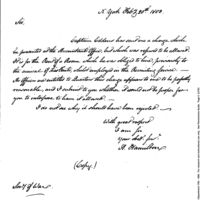 N. York Feby 20th 1800.
Sir,
Captain Eddens has sent me a charge, which
he presented at the Accountants Office, but which was refused to be allowed.
It is for the Rent of a Room which he was obliged to hire, previously to
the arrival of his tents, while employed in the Recruiting Service —
No Officers are entitled to Quarters this charge appears to me to be perfectly
reasonable, and I submit to you whether it would not be proper for
you to interpose to have it allowed. —
I do not see why it should have been rejected —
With great respect
I am Sir
your obedt servt
A. Hamilton
(Copy.)
Secy of War